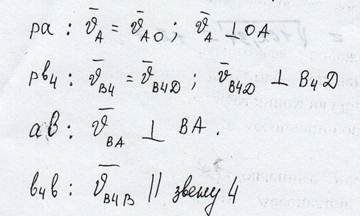 pa : ϑ̄_A = ϑ̄_AO ; ϑ̄_A ⊥ OA
pв₄ : ϑ̄_B4 = ϑ̄_B4D ; ϑ̄_B4D ⊥ B₄D
aв : ϑ̄_BA ⊥ BA .
в₄в : ϑ̄_B4B || звену 4